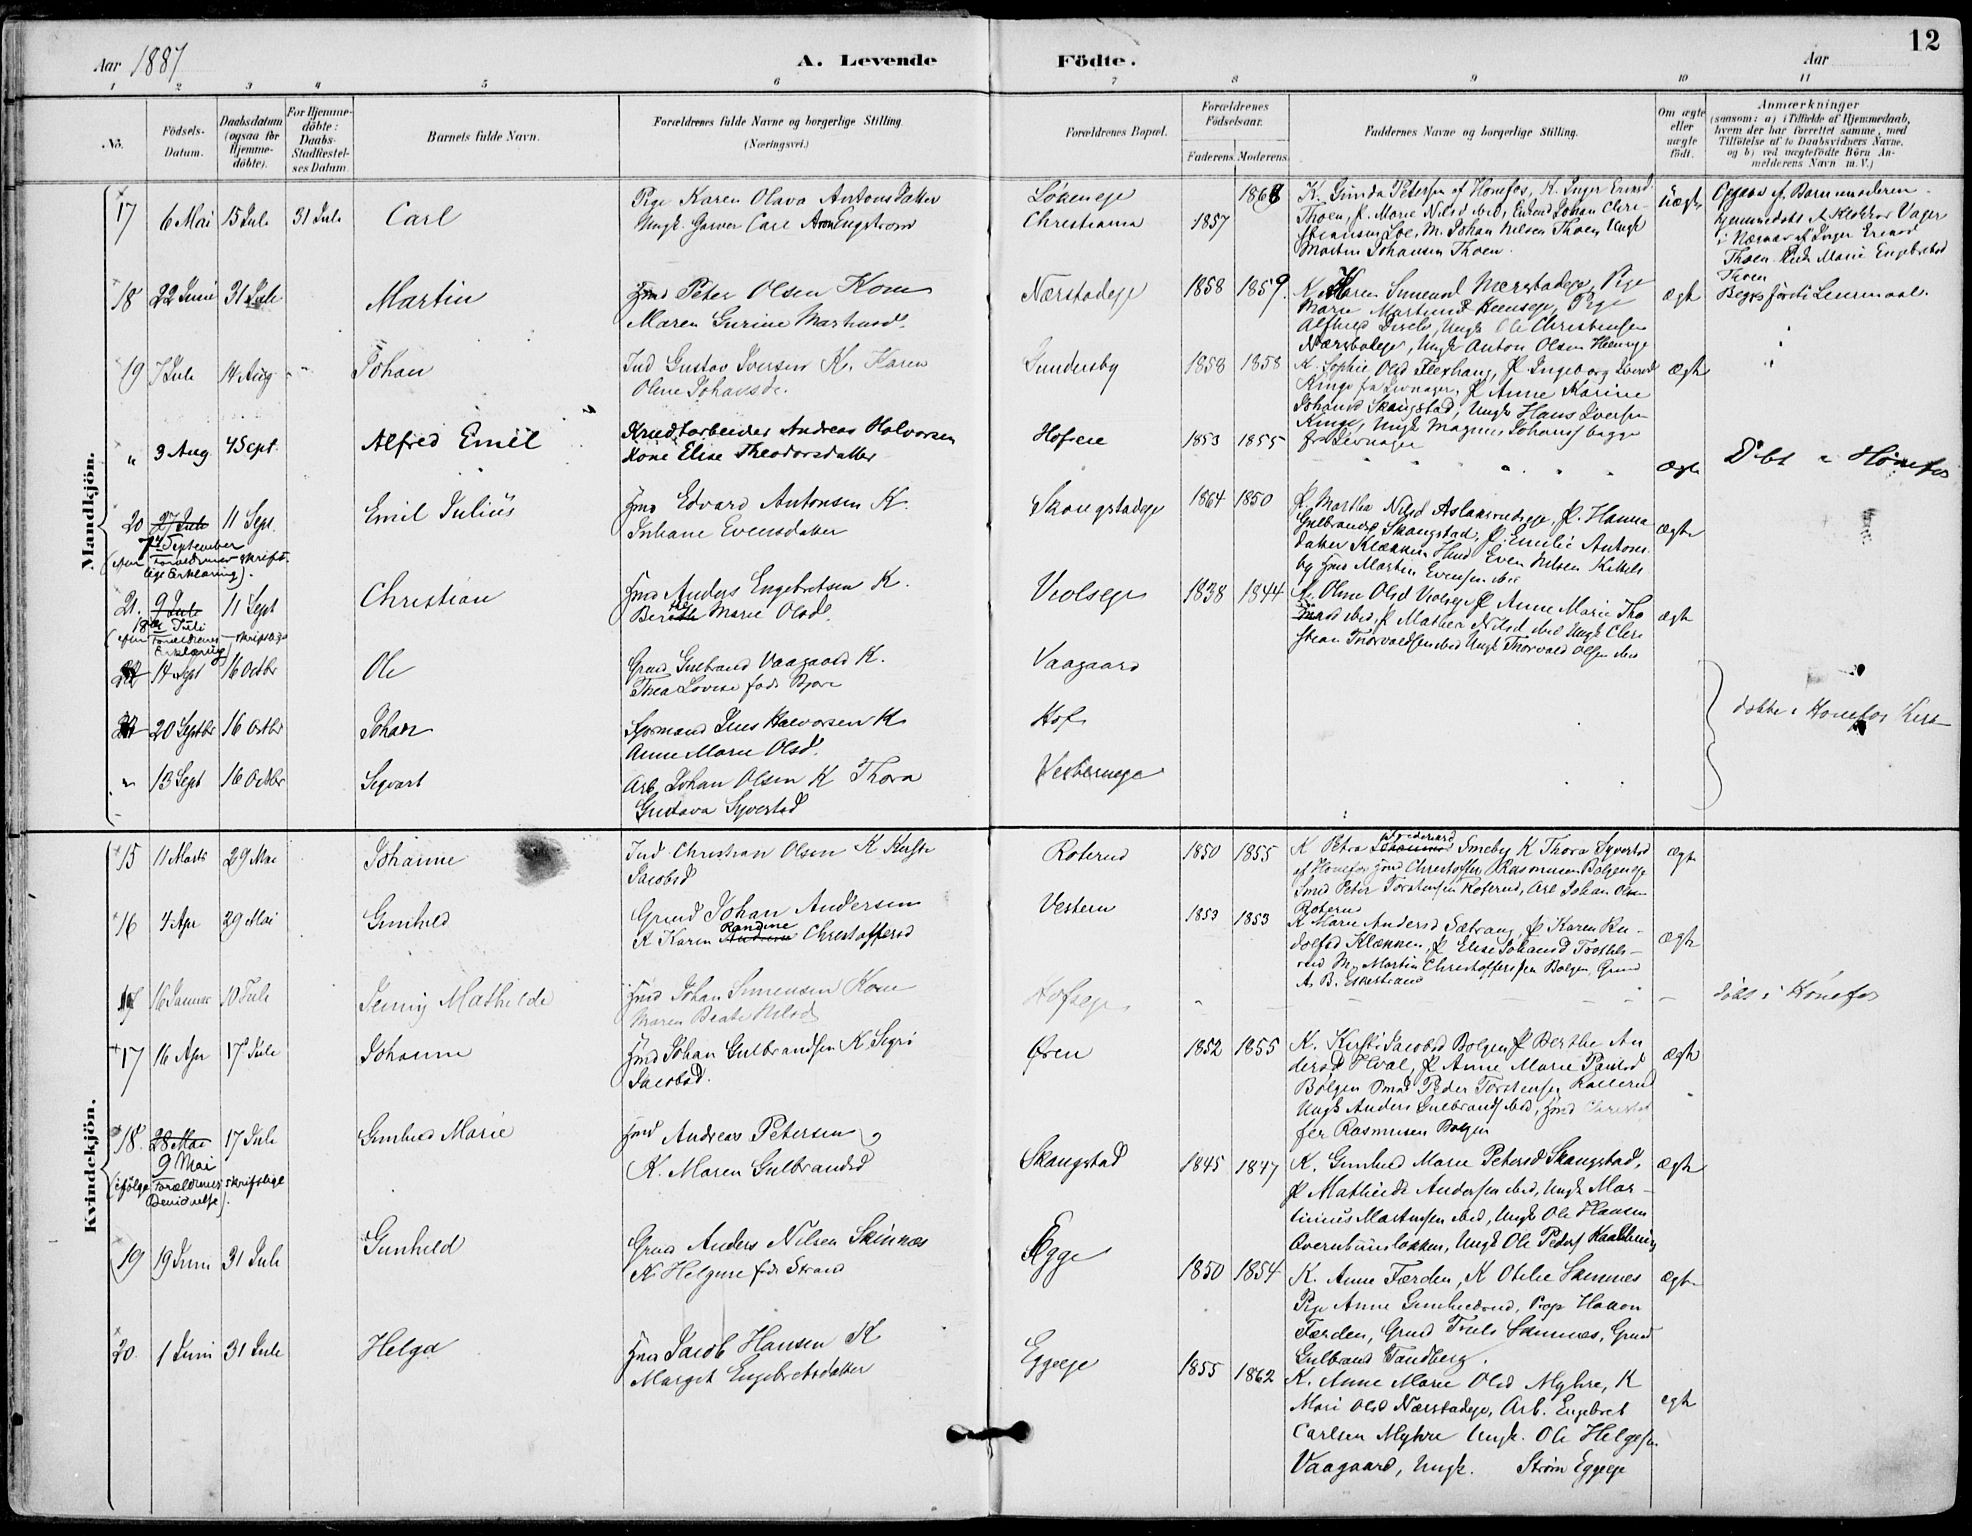 12
Aar 1887
A. Levende Födte.
Aar
1 2 3 4 5 6 7 8 9 10 11
No.
Födsels-Datum.
Daabsdatum (ogsaa for Hjemme-döbte).
For Hjemme-döbte: Daabs-Stadfæstel-ses Datum.
Barnets fulde Navn.
Forældrenes fulde Navne og borgerlige Stilling.
(Næringsvei.)
Forældrenes Bopæl.
Forældrenes Födselsaar.
Faderens. Moderens.
Faddernes Navne og borgerlige Stilling.
Om ægte eller uægte födt.
Anmærkninger
(saasom: a) i Tilfælde af Hjemmedaab,
hvem der har forrettet samme, med
Tilföielse af to Daabsvidners Navne,
og b) ved uægtefödte Börn An-
melderens Navn m. V.)
Mandkjön.
17 6 Mai 15 Juli 31 Juli Carl
Pige Karen Olava Antonsdatter
Ungk. Garver Carl Aron Engstrom
Løkeneje
Christiania 1857 1868
K. Gunda Petersen af Hønefos, K. Inger Erensd
Thoen, P. Marie Nilsd ibid, Enkemd Johan Chri-
stiansen Loe, M. Johan Nilsen Thoen Ungk
Martin Johansen Thoen.
Uægte
Opgave af Barnemoderen
hjemmedøbt af Kirkesanger Vager
i Nærvær af Inger Erensd
Thoen Pige Marie Engebretsd
Thoen
Begges første Leiermaal.
18 22 Juni 31 Juli Martin
Hmd Peter Olsen Kone
Maren Gurine Martinsd.
Nærstadeje 1858 1859.
K. Karen Simensd Nærstadeje, Pige
Marie Martinsd Heenseje, Pige
Ungk Ole Christensen
Nærstadeje, Ungk Anton Olsen Heenseje
ægte
19 7 Juli 14 Aug - - Johan
Ind Gustav Iversen K. Karen
Oline Johansdr.
Gunderby 1858 1858
K. Sophie Olsd Flexhaug, P. Ingeborg Iversd
Kinge fra Levnager, P Anne Karine
Johansd Skaugstad, Ungk Hans Iversen
Kinge, Ungk Magnus Johans Bagge
fra Levnager
ægte
" 3 Aug 4 Sept. Alfred Emil
Krudtarbeider Andreas Halvorsen
Kone Elise Theodorsdatter
Hofseie 1853 1855
ægte
Døbt i Hønefos
20 27 Juli 11 Sept. Emil Julius
7de September
(efter Forældrenes skrift-
lige Erklæring).
Hmd Edvard Antonsen K.
Juliane Evensdatter
Skaugstadeje 1864 1850
P. Martha Nilsd Aslaksrudeje, P. Hanna
Gulbrandsd Skaugstad, P. Emilie Antons
datter Klækken Hmd Even Nilsen Kittels
by Hmd Martin Evensen ibid
ægte
21. 9 Juli 11 Sept Christian
18de Juli
(efter Forældrenes skriftlige
Erklæring)
Hmd Anders Engebretsen K.
Berthe Marie Olsd.
Veolseje 1838 1844
K. Oline Olsd Veolseje P Anne Marie Tho
masd ibid, P Mathea Nilsd ibid Ungk Chri
stian Thorvaldsen ibid Ungk Thorvald Olsen ibid
ægte
22 14 Sept 16 Octbr Ole
Grmd Gulbrand Vaagaard K.
Thea Lovise født Bjøre
Vaagaard
20 Septbr 16 Octbr Johan
Styrmand Jens Halvorsen K
Anne Marie Olsd.
Hof
døbte i Hønefos Kirke
" 13 Sept 16 Octbr Sigvart
Arb. Johan Olsen K Thora
Gustava Syverstad
Vesterneje
Kvindekjön.
15 11 Marts 29 Mai Johanne
Ind Christian Olsen K Kirsti
Jacobsd
Roterud 1850 1855
K Petra Smeby K Thora Syverstad
af Hønefos Hmd Christoffer Rasmussen Bolgeneje
Smed Peter Torstensen Roterud, Arb Johan Olsen
Rotern
ægte
16 4 Apr 29 Mai Gunhild
Grmd Johan Andersen
K Karen Randine Andrine Christoffersd
Vestern 1853 1853
K Marie Andersd Sætrang, P Karen Ru-
dolfsd Klækken, P Elise Johansd Tostels-
rud M. Martin Christoffersen Bolgen Grmd
A. B. Eskestrand
ægte
17 16 Januar 10 Juli Jenny Mathilde
Hmd Johan Simensen Kone
Maren Beate Nilsd
Hofseje
døbt i Hønefos
17 16 Apr 17 Juli Johanne
Hmd Johan Gulbrandsen K Sigri
Jacobsd.
Øren 1852 1855
K. Kirsti Jacobsd Bolgen P Berthe An
dersd Hval, P Anne Marie Paulsd
Bolgen Smed Peder Torstensen Roterud
Ungk Anders Gulbrands ibid, Hmd Christof
fer Rasmusen Bolgen
ægte
18. 28 Mai 17 Juli Gunhild Marie
9 Mai
(ifølge Forældrenes skriftlige
Bevidnelse).
Hmd Andreas Petersen
K. Maren Gulbrandsd
Skaugstad 1845 1847
K. Gunhild Marie Petersd Skaugstad,
P Mathilde Andersen ibid, Ungk Mar-
tinius Martinsen ibid, Ungk Ole Hansen
Overnbuneløkken, Ungk Ole Peders
ægte
19 19 Juni 31 Juli Gunhild
Grmd Anders Nilsen Skinnes
K. Helgine født Strand
Egge 1850 1854
K. Anne Færden, K Otilie Samnes
Pige Anne Gunhildrud, Prop Haaon
Færden, Grmd Truls Samnes, Grmd
Gulbrand Tandberg.
ægte
20. 1 Juni 31 Juli Helga
Hmd Jacob Hansen K
Margit Engebretsdatter
Eggeeje 1855 1862
K. Anne Marie Olsd Myhre, K
Mari Olsd Nærstadeje, Arb. Engebret
Carlsen Myhre Ungk. Ole Helgesen
Vaagaard, Ungk. Strøm Eggeeje
egte